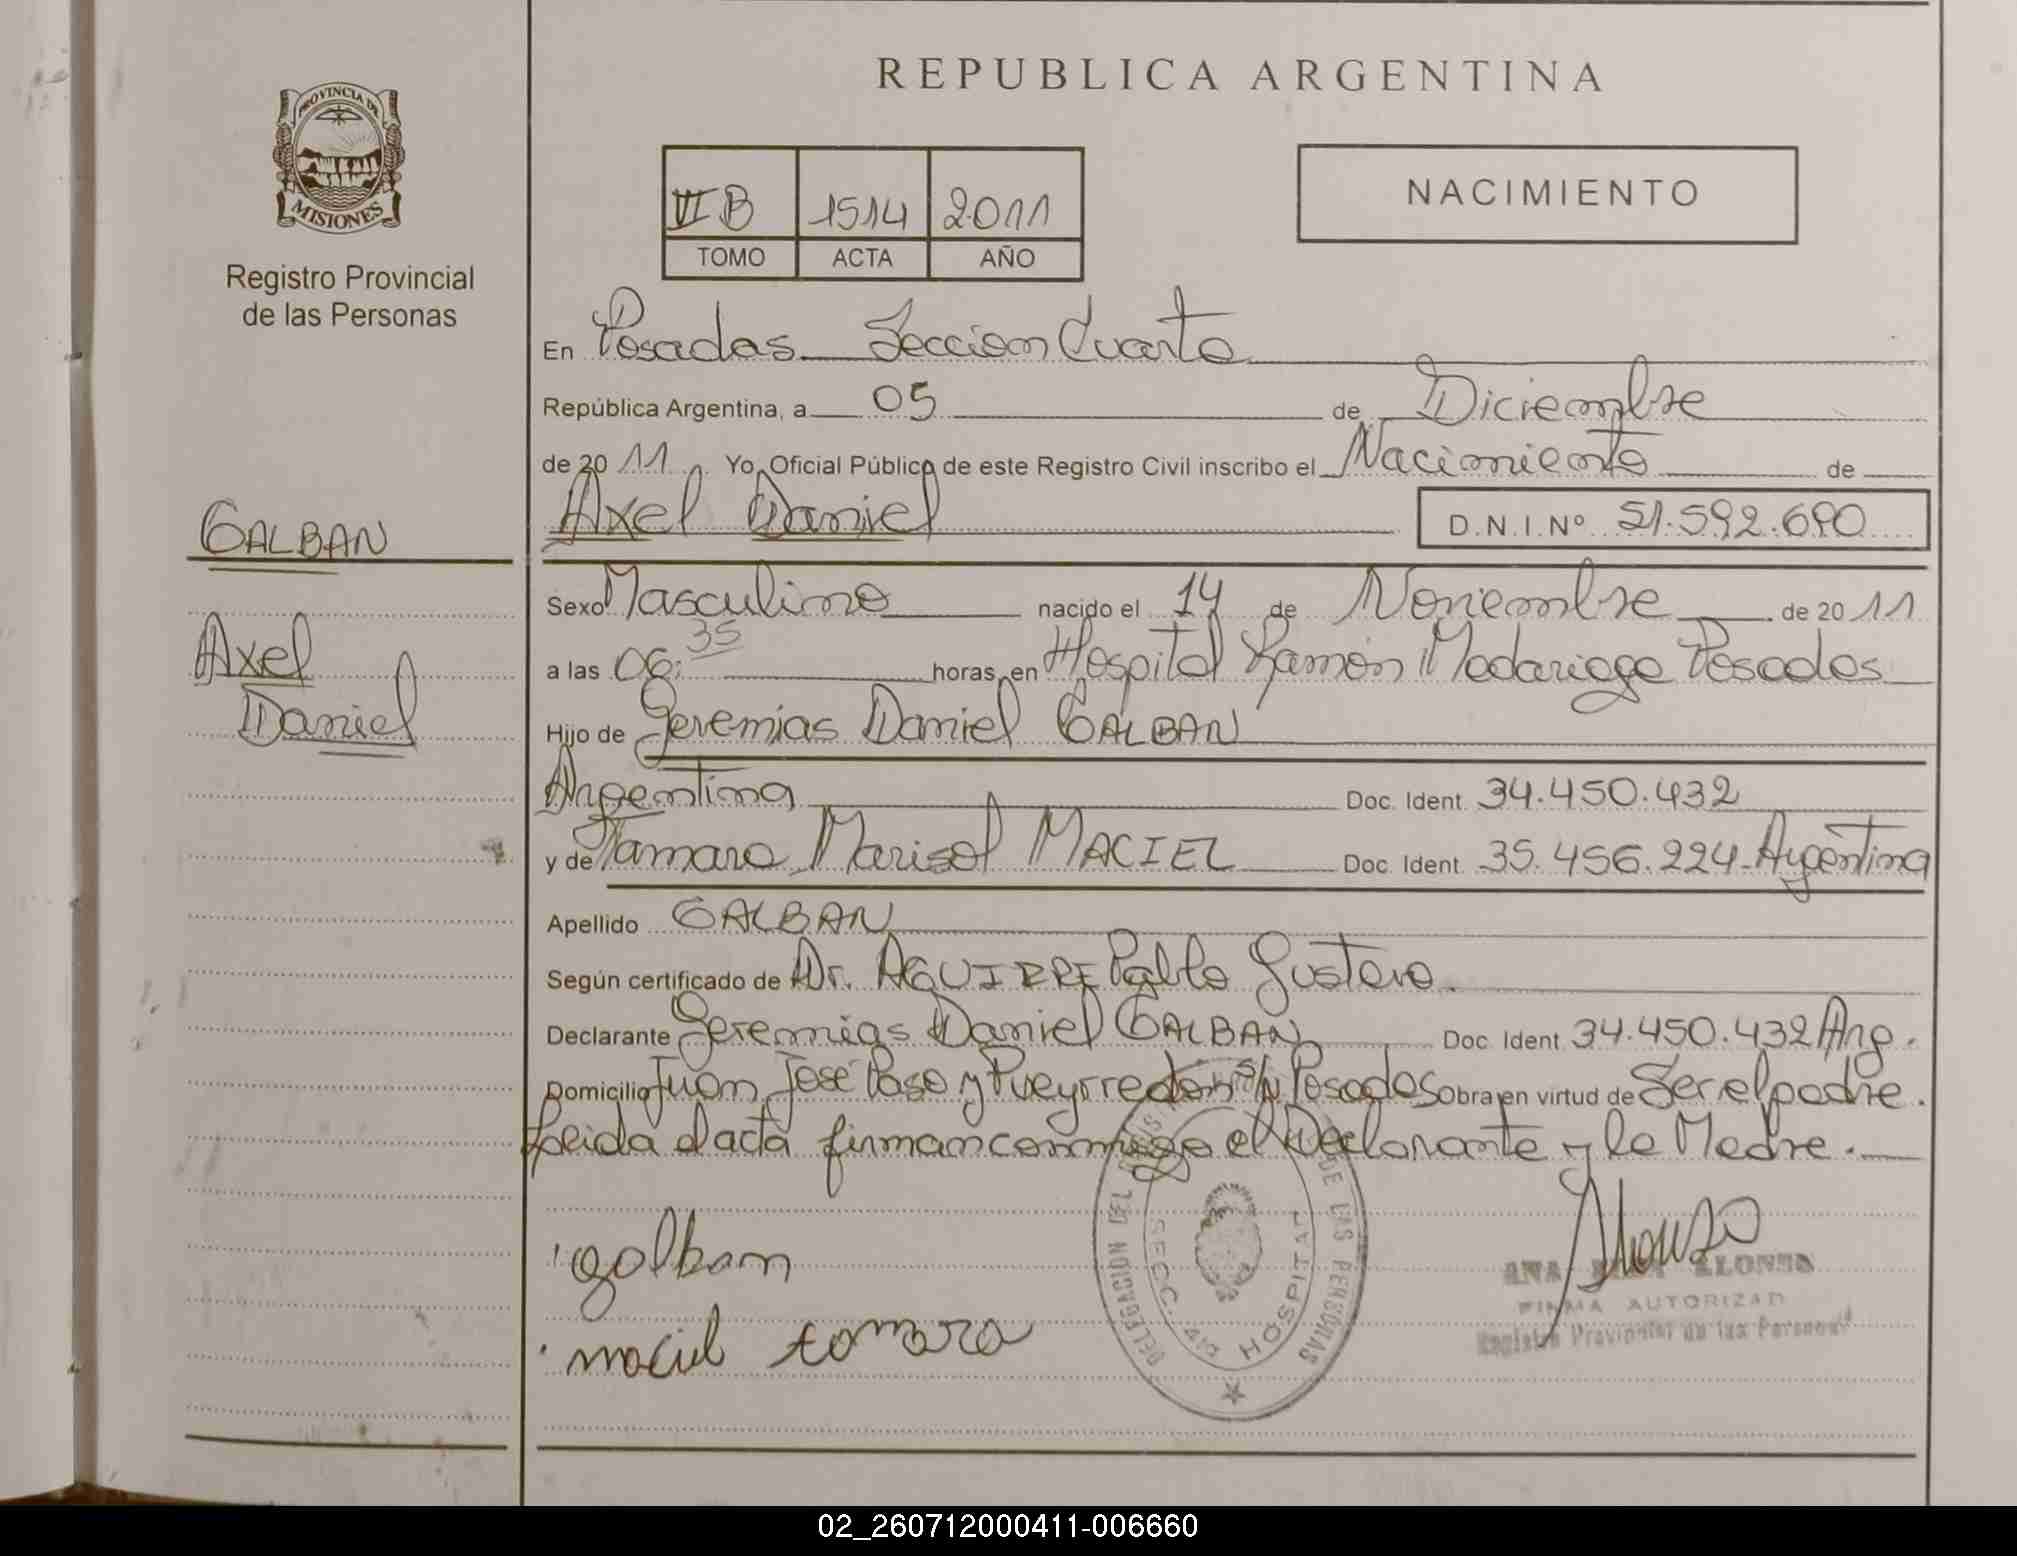 REPUBLICA ARGENTINA
PROVINCIA DE
MISIONES
Registro Provincial
de las Personas
VI B 1514 2011
TOMO ACTA AÑO
NACIMIENTO
En Posadas Seccion Cuarta
República Argentina, a 05 de Diciembre
de 2011. Yo, Oficial Público de este Registro Civil inscribo el Nacimiento de
Axel Daniel
D.N.I.Nº 51.592.690
GALBAN
Axel
Daniel
Sexo Masculino nacido el 14 de Noviembre de 2011
a las 06:35 horas, en Hospital Ramón Madariaga Posadas
Hijo de Geremias Daniel GALBAN
Argentina Doc. Ident. 34.450.432
y de Tamara Marisol MACIEL Doc. Ident. 35.456.224-Argentina
Apellido GALBAN
Según certificado de Dr. AGUIRRE Pablo Gustavo.
Declarante Geremias Daniel GALBAN Doc. Ident. 34.450.432 Arg.
Domicilio Juan José Paso y Pueyrredon s/n Posadas Obra en virtud de Ser el padre.
Leida el acta firman conmigo el Declarante y la Madre.
galban
maciel tamara
DELEGACION DEL REGIS DE LAS PERSONAS
SECC. 4ta HOSPITAL
Alonso
ANA ALONSO
FIRMA AUTORIZAD
Registro Provincial de las Personas
02_260712000411-006660